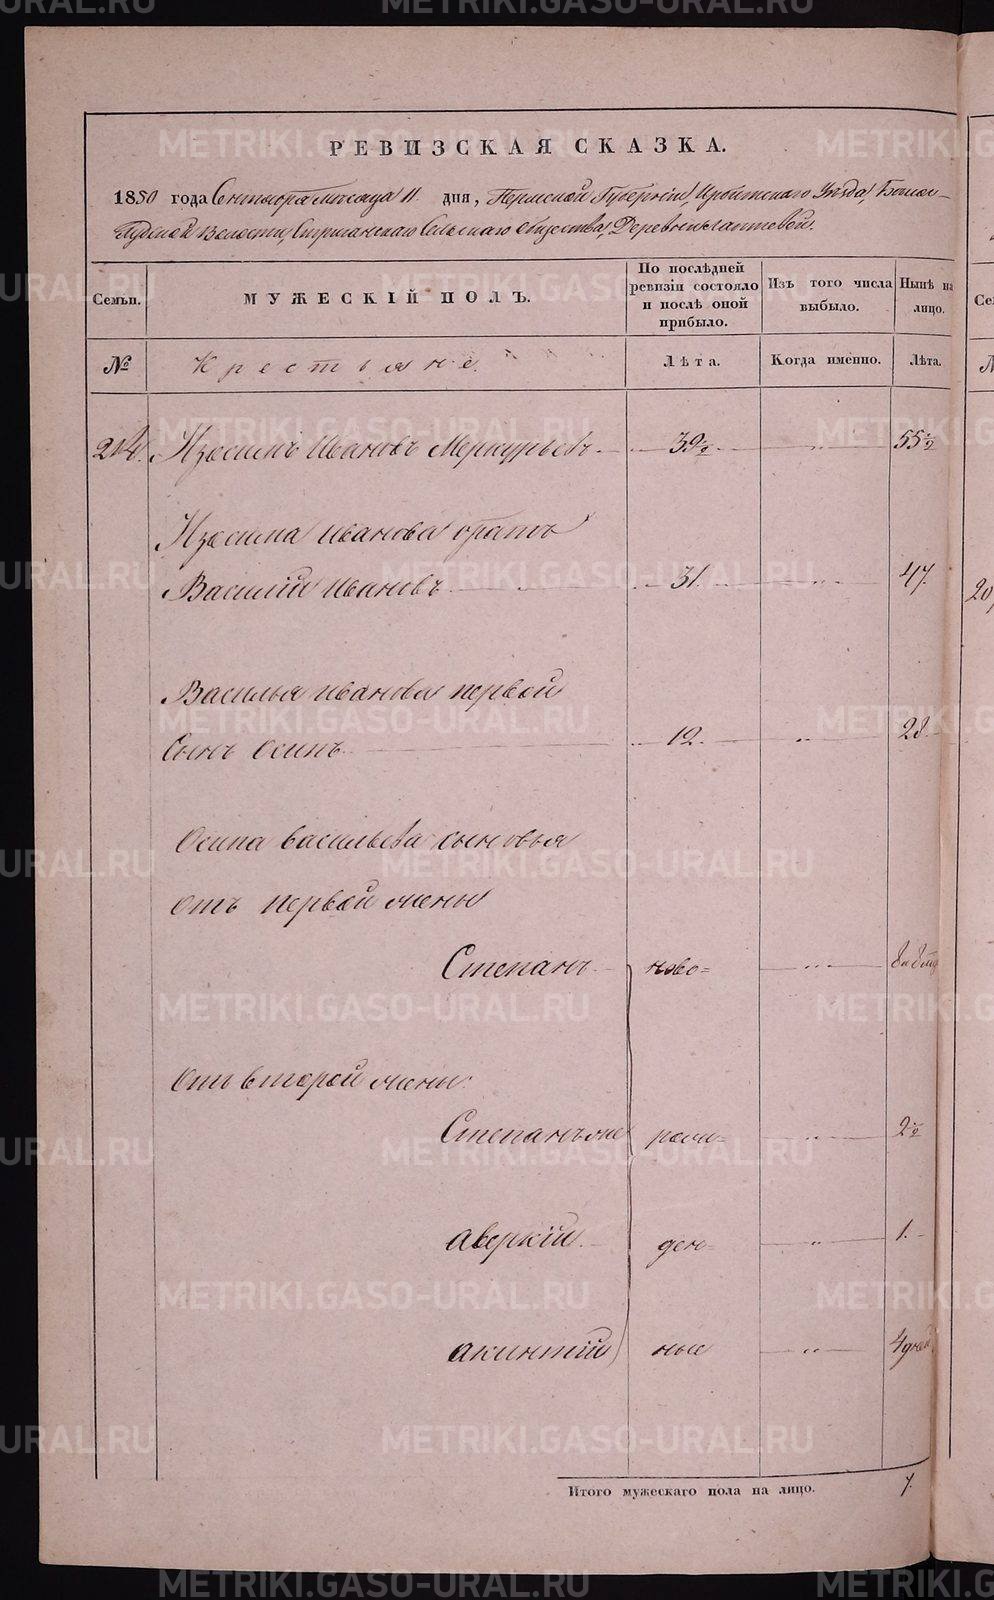 РЕВИЗСКАЯ СКАЗКА.
1850 года Сентября месяца 11 дня, Пермской Губернии, Ирбитского Уезда,
Волости, Сельскаго общества, Деревни Лаптевой.
Семьи. МУЖЕСКІЙ ПОЛЪ. По послѣдней ревизіи состояло и послѣ оной прибыло. Изъ того числа выбыло. Нынѣ на лицо.
№ Крестьяне. Лѣта. Когда именно. Лѣта.
Изосимъ Ивановъ Меркурьевъ 39 1/2 " 55 1/2
Изосима Иванова братъ
Василій Ивановъ 31. " 47.
Василья Иванова первой
Сынъ Осипъ 12. " 28.
Осипа Васильева сыновья
Отъ первой жены
Степанъ ново= "
Отъ второй жены:
Степанъ же рож= " 2 1/2
Аверкій ден= " 1.
Акинтій ные " 4 дней
Итого мужескаго пола на лицо. 7.
METRIKI.GASO-URAL.RU